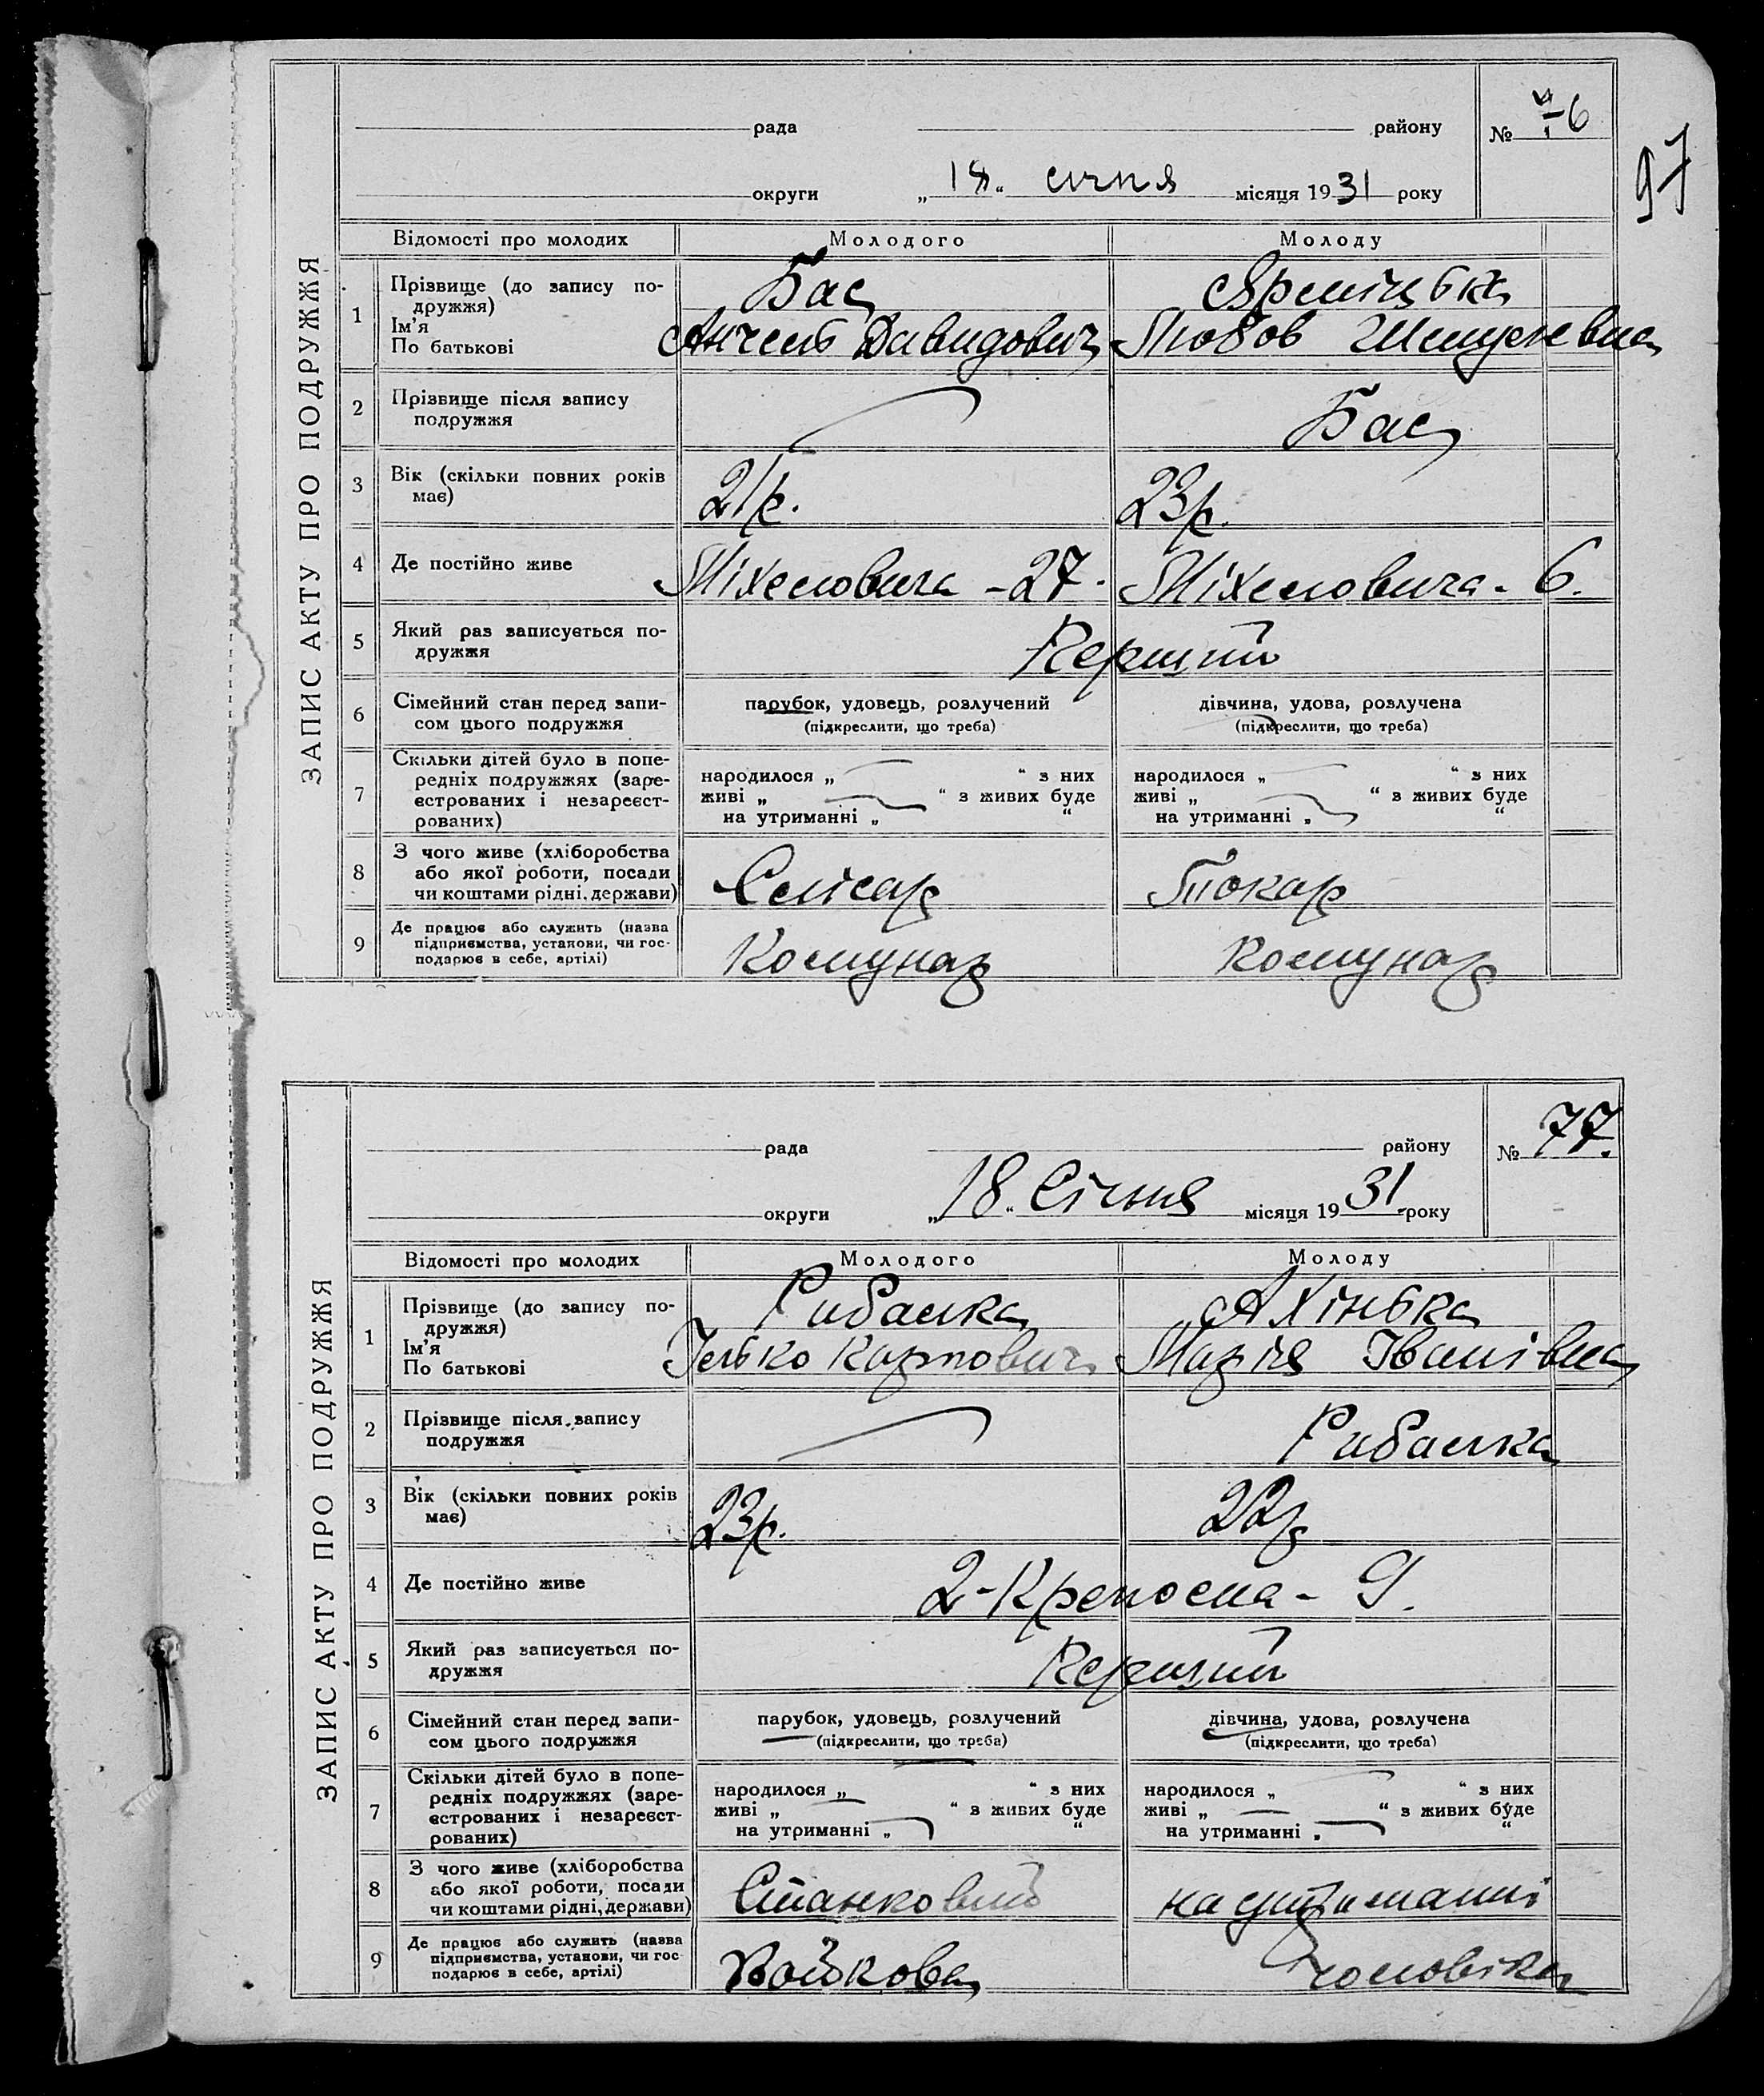 97
ЗАПИС АКТУ ПРО ПОДРУЖЖЯ
рада району № 76
округи „18“ січня місяця 1931 року
Відомості про молодих Молодого Молоду
1 Прізвище (до запису по-
дружжя)
Ім'я
По батькові
Бас
Анчель Давидович
Любов Шмулевна
2 Прізвище після запису
подружжя
Бас
3 Вік (скільки повних років
має)
21р. 23р.
4 Де постійно живе Міхеловича - 27. Міхеловича - 6.
5 Який раз записується по-
дружжя
Перший
6 Сімейний стан перед запи-
сом цього подружжя
парубок, удовець, розлучений дівчина, удова, розлучена
(підкреслити, що треба) (підкреслити, що треба)
7 Скільки дітей було в попе-
редніх подружжях (заре-
єстрованих і незареєст-
рованих)
народилося „ “ з них народилося „ “ з них
живі „ “ з живих буде живі „ “ з живих буде
на утриманні „ “ на утриманні „ “
8 З чого живе (хліборобства
або якої роботи, посади
чи коштами рідні, держави)
Слісар Токар
9 Де працює або служить (назва
підприємства, установи, чи гос-
подарює в себе, артілі)
Комунар Комунар
ЗАПИС АКТУ ПРО ПОДРУЖЖЯ
рада району № 77.
округи „18“ Січня місяця 1931 року
Відомості про молодих Молодого Молоду
1 Прізвище (до запису по-
дружжя)
Ім'я
По батькові
Рибалка Ахінька
Ілько Карпович Марія Іванівна
2 Прізвище після запису
подружжя
Рибалка
3 Вік (скільки повних років
має)
23р. 22р
4 Де постійно живе 2-Крепосна - 9.
5 Який раз записується по-
дружжя
Перший
6 Сімейний стан перед запи-
сом цього подружжя
парубок, удовець, розлучений дівчина, удова, розлучена
(підкреслити, що треба) (підкреслити, що треба)
7 Скільки дітей було в попе-
редніх подружжях (заре-
єстрованих і незареєст-
рованих)
народилося „ “ з них народилося „ “ з них
живі „ “ з живих буде живі „ “ з живих буде
на утриманні „ “ на утриманні „ “
8 З чого живе (хліборобства
або якої роботи, посади
чи коштами рідні, держави)
Станковий на утриманні
9 Де працює або служить (назва
підприємства, установи, чи гос-
подарює в себе, артілі)
Войкова чоловіка